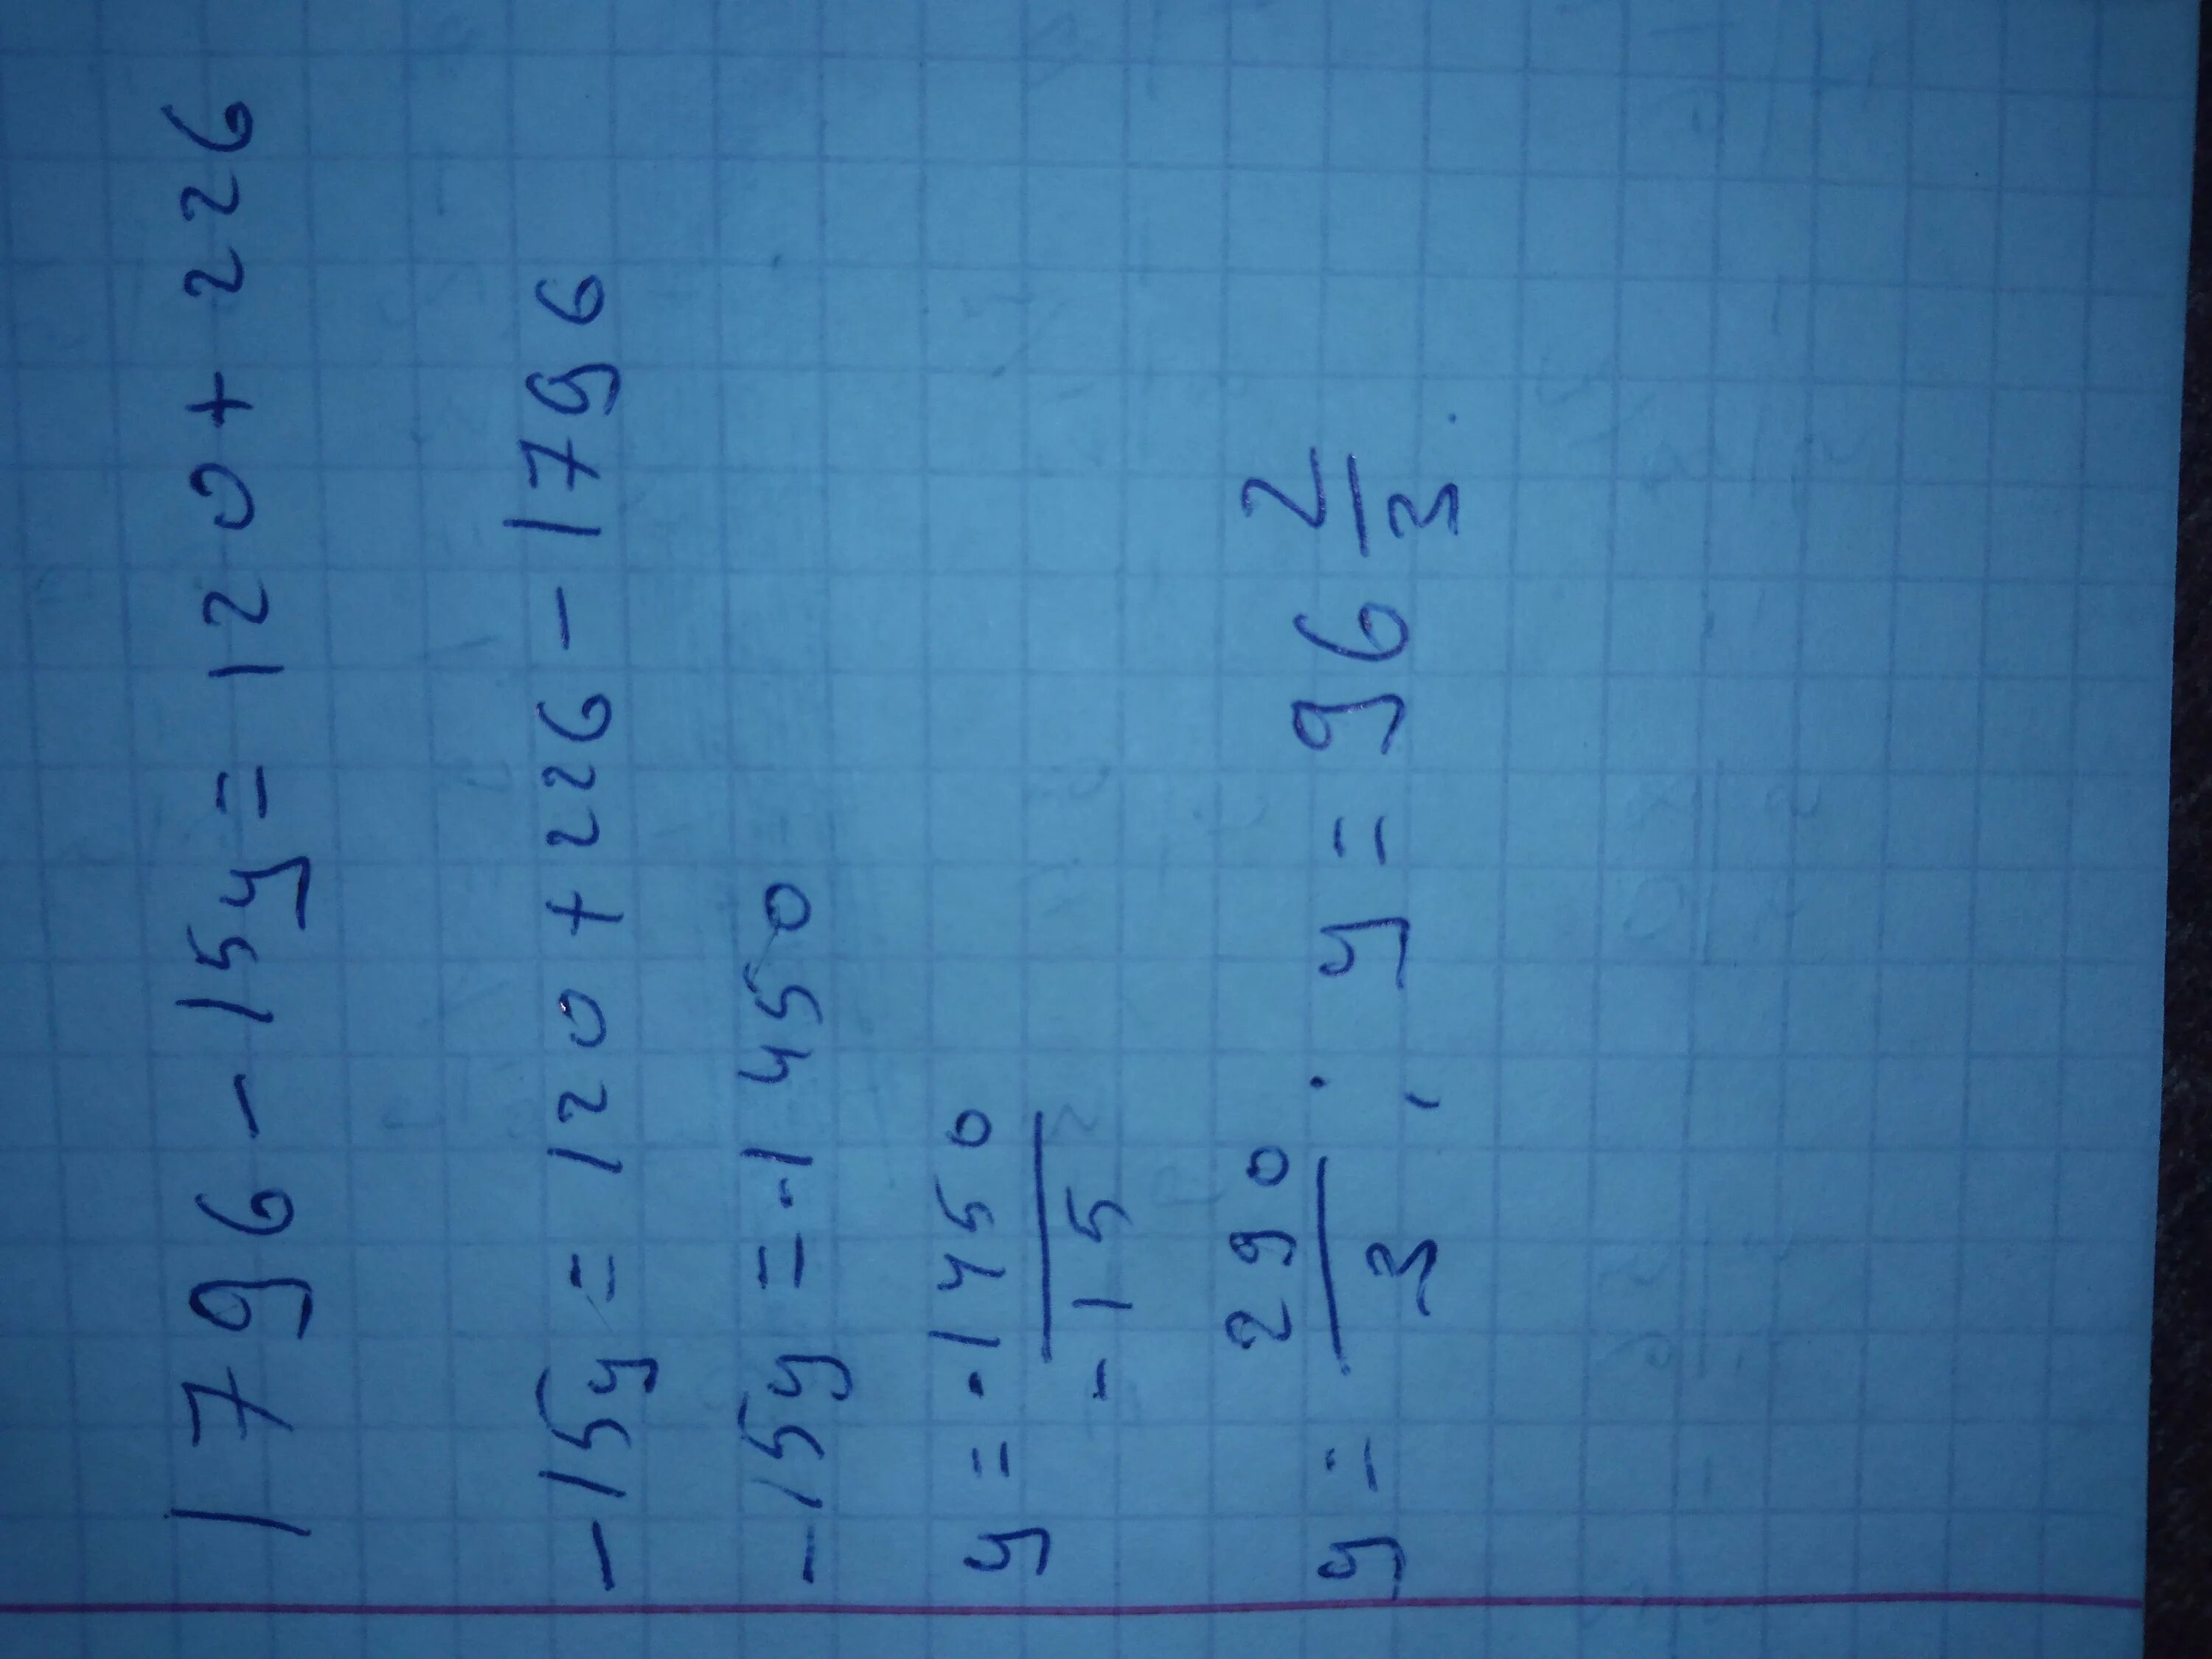 1796 - 15y = 120 + 226
-15y = 120 + 226 - 1796
-15y = -1450
y = -1450/-15
y = 290/3; y = 96 2/3.